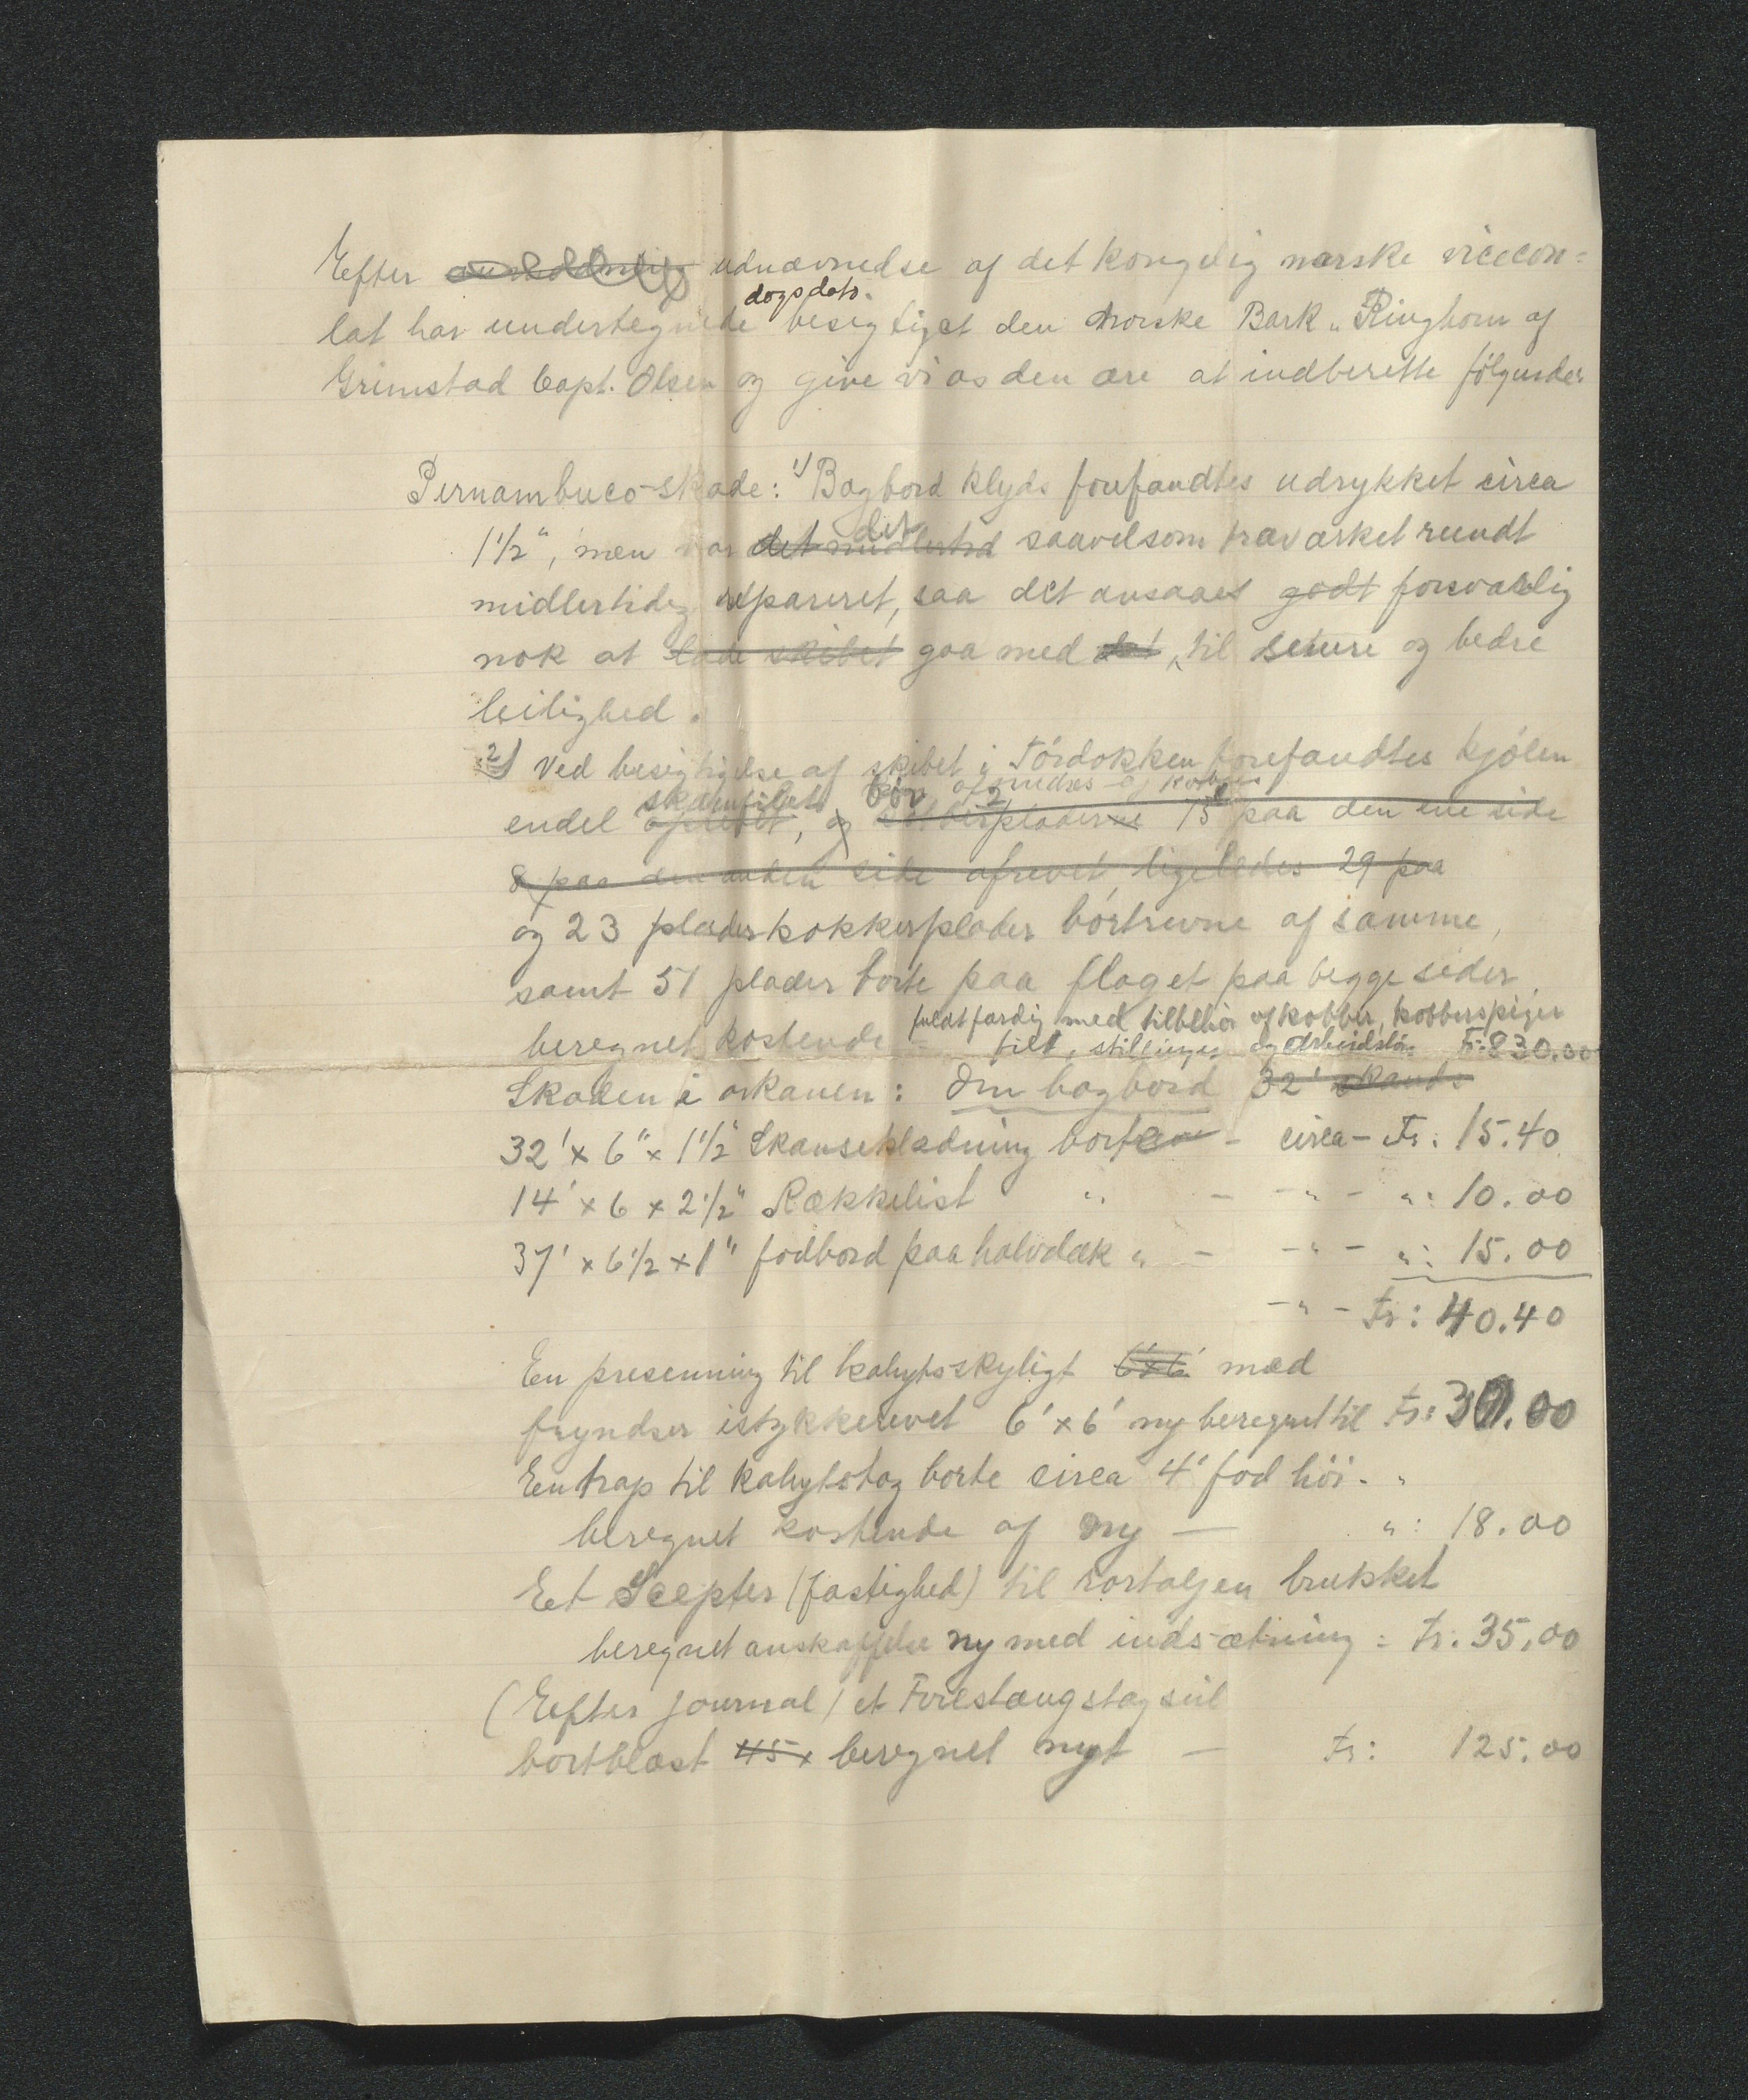 Efter udnævnelse af det kongelig norske vicecon=
dags dato.
lat har undertegnede besigtiget den norske Bark „Ringhorn af
Grimstad Capt. Olsen og give vi os den ære at indberette følgende:
Pernambuco-skade: 1) Bagbord klyds forefandtes udrykket circa
det
1½", men var det midlertid saavelsom træværket rundt
midlertidig repareret, saa det ansaaes godt forsvarlig
nok at lade skibet gaa med det, til senere og bedre
leilighed.
2) Ved besigtigelse af skibet i Tördokken forefandtes kjölen
skamfilet, bör afsmedes og
endel oprevet, og kobberpladerne 15 paa den ene side
8 paa den anden side afrevet, ligeledes 29 paa
og 23 plader kokkerplader bortrevne af samme,
samt 51 plader borte paa flaget paa begge sider
fuldt færdig med tilbehör af kobber, kobberspiger
beregnet kostende = filt, stillinger og Arbeidslön. Fr: 830.00
Skaden i orkanen: Om bagbord 32' skands
32' x 6" x 1½" Skanseklædning borte - circa - Fr: 15.40
14' x 6 x 2½" Rækkelist " - - " - ": 10.00
37' x 6½ x 1" fodbord paa halvdæk " - - " - ": 15.00
- " - Fr: 40.40
En presenning til kahytsskyligt 6'x6' med
fryndser istykkerevet 6' x 6' ny beregnet til Fr: 30.00
En trap til kahytstag borte circa 4' fod höi. "
beregnet kostende af ny — ": 18.00
Et Scepter (fastighed) til rortaljen brukket
beregnet anskaffelse ny med indsætning = Fr. 35,00
(Efter journal) et Forestængstagseil
bortblæst 45 x beregnet nyt — Fr: 125.00